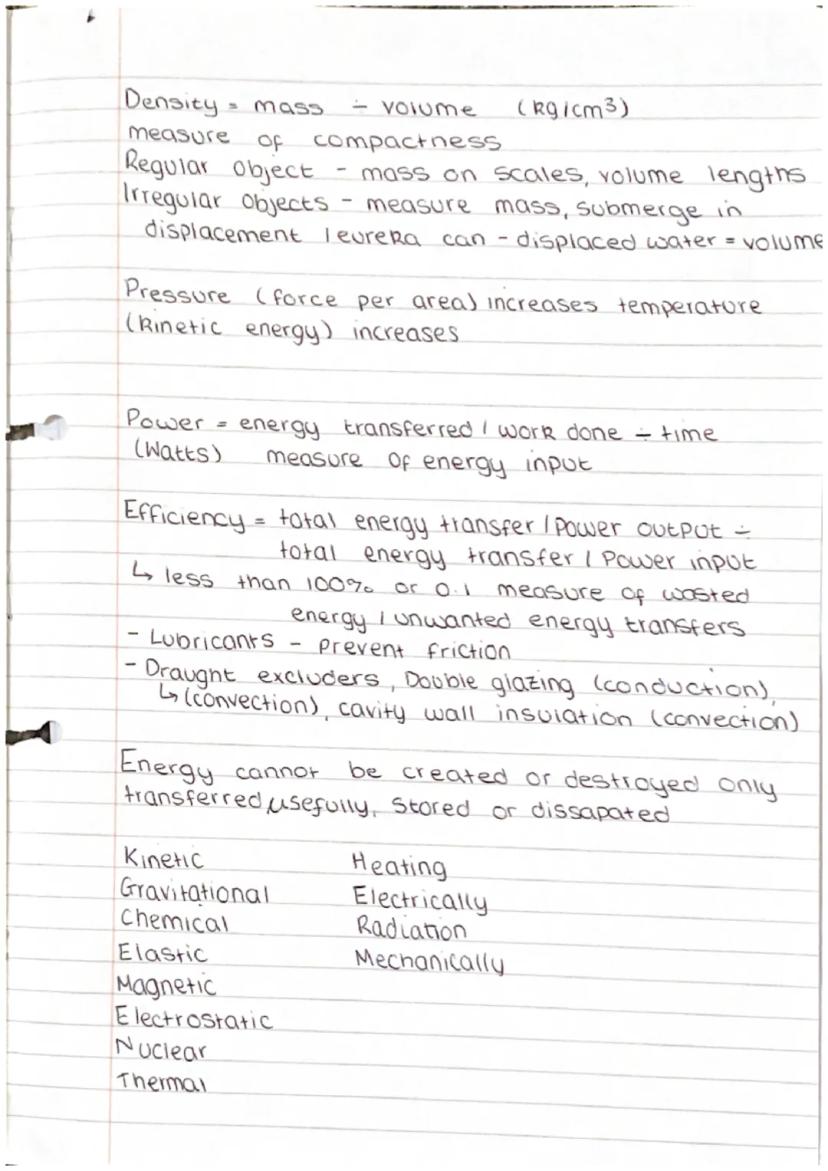 Density = mass ÷ volume (kg/cm³)
measure of compactness
Regular object - mass on scales, volume lengths
Irregular objects - measure mass, submerge in
displacement / eureka can - displaced water = volume
Pressure (force per area) increases temperature
(kinetic energy) increases
Power = energy transferred / work done ÷ time
(Watts) measure of energy input
Efficiency = total energy transfer / power output ÷
total energy transfer / Power input
↳ less than 100% or 0.1 measure of wasted
energy / unwanted energy transfers
- Lubricants - prevent friction
- Draught excluders, Double glazing (conduction),
↳ (convection), cavity wall insulation (convection)
Energy cannot be created or destroyed only
transferred usefully, stored or dissapated
Kinetic Heating
Gravitational Electrically
Chemical Radiation
Elastic Mechanically
Magnetic
Electrostatic
Nuclear
Thermal